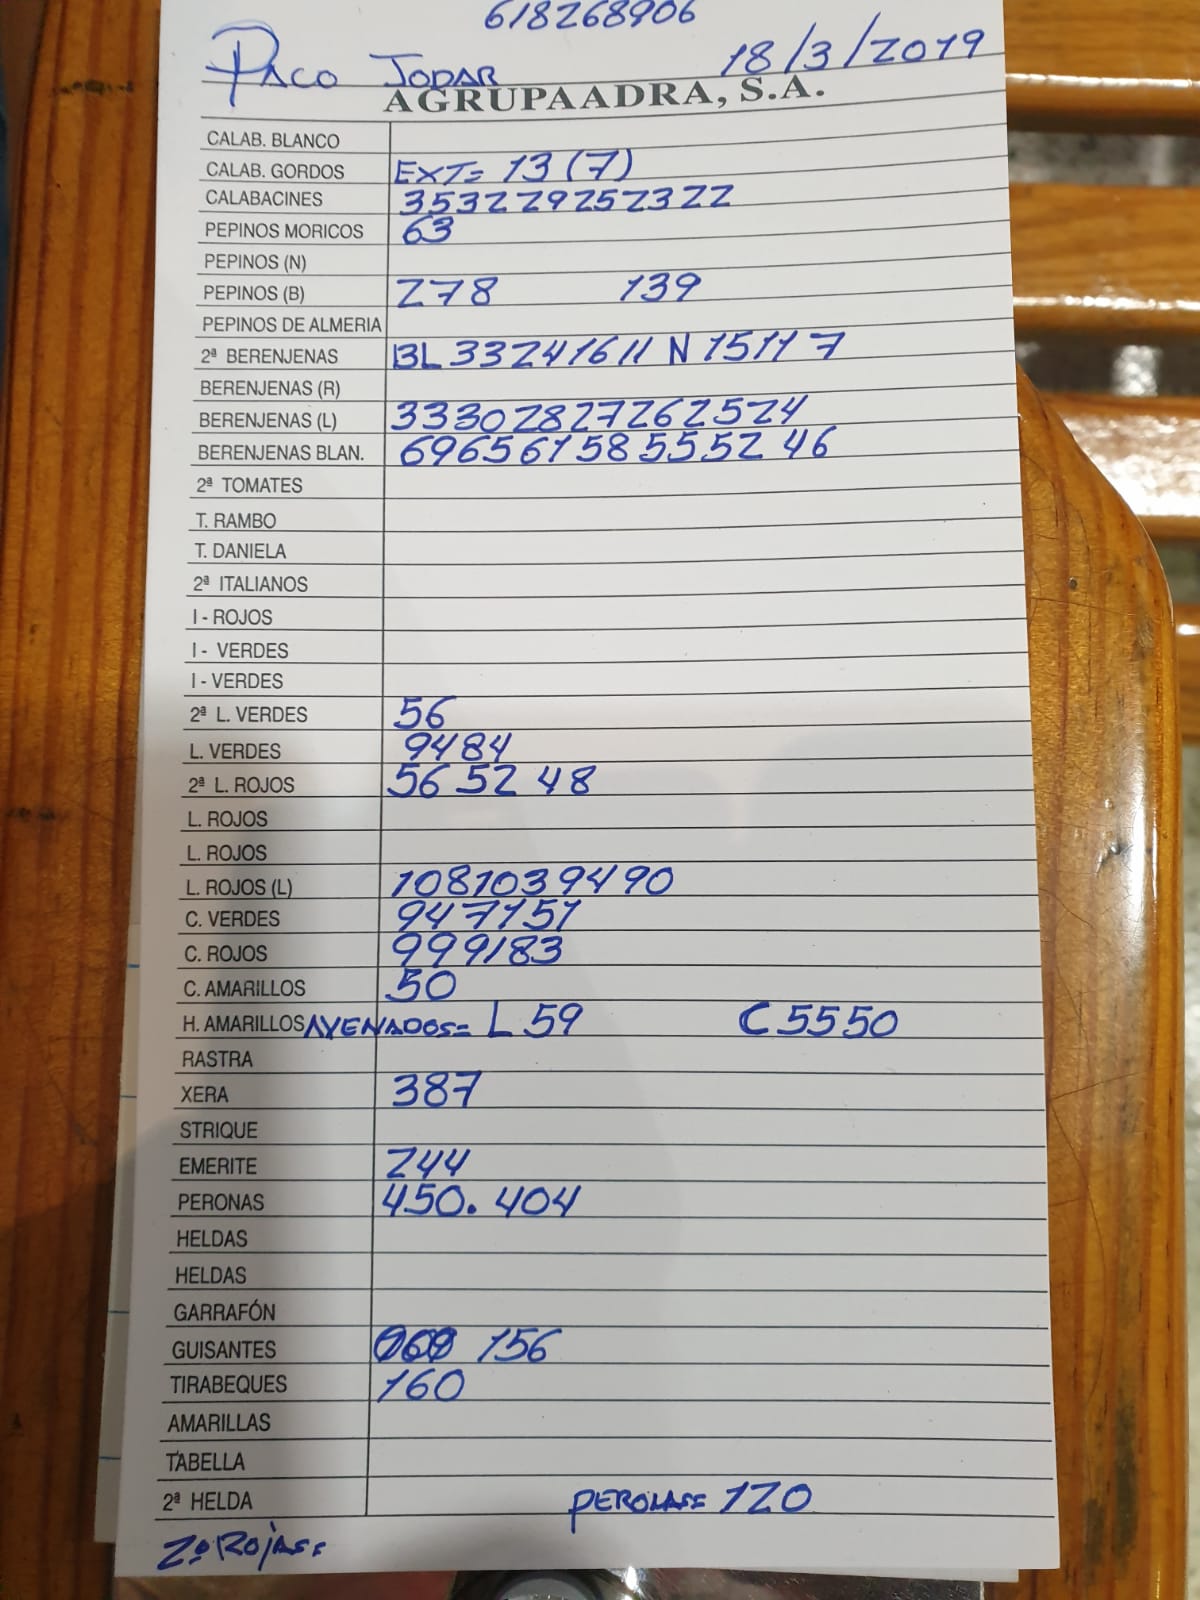 618268906
PACO JODAR 18/3/2019
AGRUPAADRA, S.A.
CALAB. BLANCO
CALAB. GORDOS EXT= 13 (7)
CALABACINES 353229252322
PEPINOS MORICOS 63
PEPINOS (N)
PEPINOS (B) 278 139
PEPINOS DE ALMERIA
2ª BERENJENAS BL 33241611 N 15117
BERENJENAS (R)
BERENJENAS (L) 33302827262524
BERENJENAS BLAN. 69656158555246
2ª TOMATES
T. RAMBO
T. DANIELA
2ª ITALIANOS
I - ROJOS
I - VERDES
I - VERDES
2ª L. VERDES 56
L. VERDES 9484
2ª L. ROJOS 56 52 48
L. ROJOS
L. ROJOS
L. ROJOS (L) 1081039490
C. VERDES 947151
C. ROJOS 999183
C. AMARILLOS 50
H. AMARILLOS AVENADOS= L 59 C 5550
RASTRA
XERA 387
STRIQUE
EMERITE 244
PERONAS 450. 404
HELDAS
HELDAS
GARRAFÓN
GUISANTES 156
TIRABEQUES 160
AMARILLAS
TABELLA
2ª HELDA PERONAS= 120
2ª ROJAS=